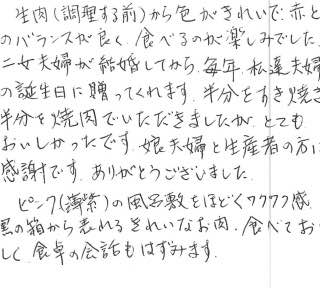 生肉(調理する前)から色がきれいで、赤と
のバランスが良く、食べるのが楽しみでした。
二女夫婦が結婚してから、毎年、私達夫婦
の誕生日に贈ってくれます。半分をすき焼き
半分を焼肉でいただきましたが、とても
おいしかったです。娘夫婦と生産者の方に
感謝です。ありがとうございました。
ピンク(薄紫)の風呂敷をほどくワクワク感
黒の箱から表れるきれいなお肉。食べてお
しく食卓の会話もはずみます。